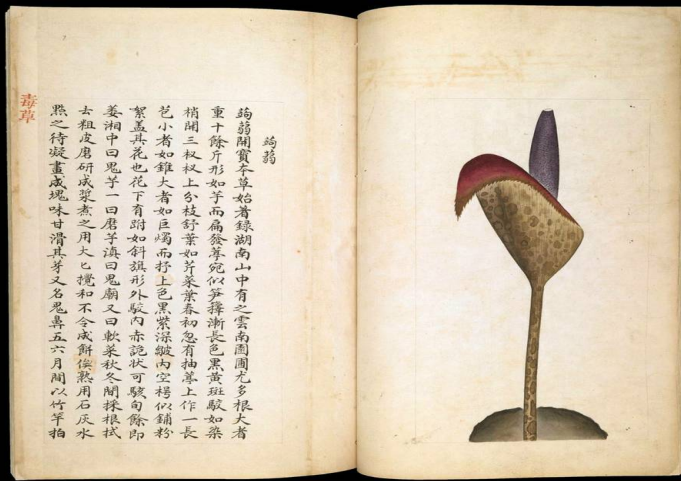 蒟蒻
蒟蒻開寶本草始著錄湖南山中有之雲南園圃尤多根大者
重十餘斤形如芋而扁發萼宛似笋籜漸長色黑黃斑駮如染
梢開三杈杈上分枝舒葉如芹菜葉春初忽有抽萼上作一長
苞小者如錐大者如巨燭而抒上色黑紫深皴內空樗似鋪粉
絮蓋其花也花下有跗如斜旗形外駮內赤詭狀可駭旬餘即
萎湘中曰鬼芋一曰磨芋滇曰鬼廟又曰軟菜秋冬間採根拭
去粗皮磨研成漿煮之用大匕攪和不令成餅俟熟用石灰水
㸃之待凝畫成塊味甘滑其芽又名鬼鼻五六月間以竹竿拍
毒草